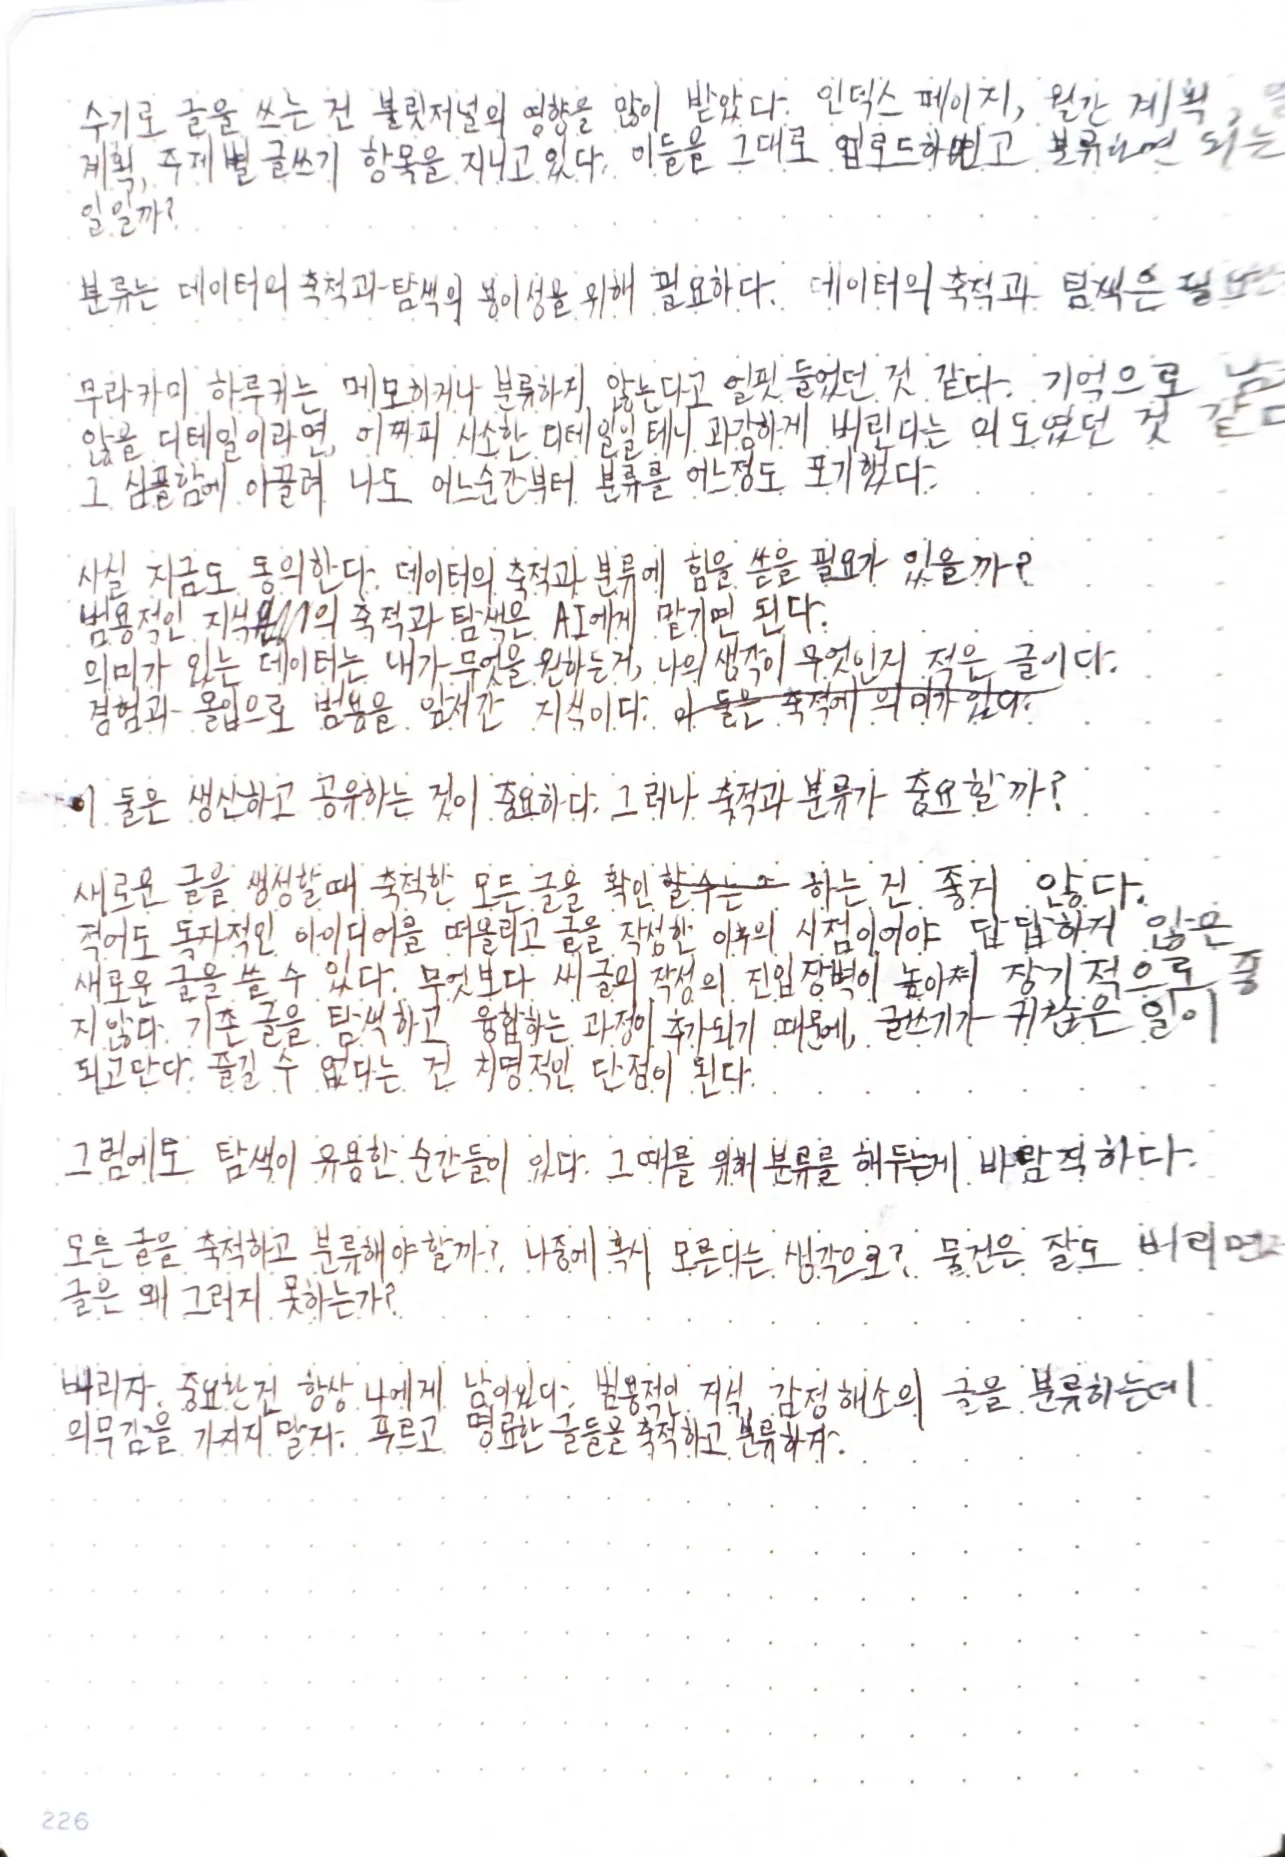 수기로 글을 쓰는 건 불릿저널의 영향을 많이 받았다. 인덱스 페이지, 월간 계획,
계획, 주제별 글쓰기 항목을 지니고 있다. 이들을 그대로 업로드하 고 분류하면 되는
일일까?
분류는 데이터의 축적과 탐색의 용이성을 위해 필요하다. 데이터의 축적과 탐색은
무라카미 하루키는 메모하거나 분류하지 않는다고 얼핏 들었던 것 같다. 기억으로
않을 디테일이라면, 어짜피 사소한 디테일일테니 과감하게 버린다는 의도였던 것
그 심플함에 이끌려 나도 어느순간부터 분류를 어느정도 포기했다.
사실 지금도 동의한다. 데이터의 축적과 분류에 힘을 쏟을 필요가 있을까?
범용적인 지식 의 축적과 탐색은 AI에게 맡기면 된다.
의미가 있는 데이터는, 내가 무엇을 원하는거, 나의 생각이 무엇인지 적은 글이다.
경험과 몰입으로 범용을 앞서간 지식이다. 이 둘은 축적에 의미가 있다.
이 둘은 생산하고 공유하는 것이 중요하다. 그러나 축적과 분류가 중요할까?
새로운 글을 생성할때 축적한 모든 글을 확인 할수는 하는 건 좋지 않다.
적어도 독자적인 아이디어를 떠올리고 글을 작성한 이후의 시점이어야 답답하지 않은
새로운 글을 쓸 수 있다. 무엇보다 새 글의 작성의 진입장벽이 높아져 장기적으로 좋
지 않다. 기존 글을 탐색하고 융합하는 과정이 추가되기 때문에, 글쓰기가 귀찮은 일이
되고만다. 즐길 수 없다는 건 치명적인 단점이 된다.
그럼에도 탐색이 유용한 순간들이 있다. 그때를 위해 분류를 해두는게 바람직하다.
모든 글을 축적하고 분류해야 할까? 나중에 혹시 모른다는 생각으로? 물건은 잘도 버리면서
글은 왜 그러지 못하는가?
버리자. 중요한건 항상 나에게 남아있다. 범용적인 지식, 감정 해소의 글을 분류하는데
의무감을 가지지 말자. 푸르고 명료한 글들을 축적하고 분류하자.
226